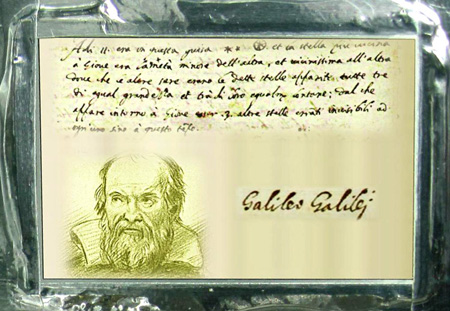 Adi 11. era in questa guisa et la stella più vicina
à Giove era la metà minore dell'altra, et vicinissima all'altra
dove che le altre sere erano le dette stelle apparite tutte tre
di equal grandezza et tra di loro lontane; dal che
appare intorno à Giove esser .3. altre stelle erranti invisibili ad
ogn'uno sino à questo tempo.
Galileo Galilej